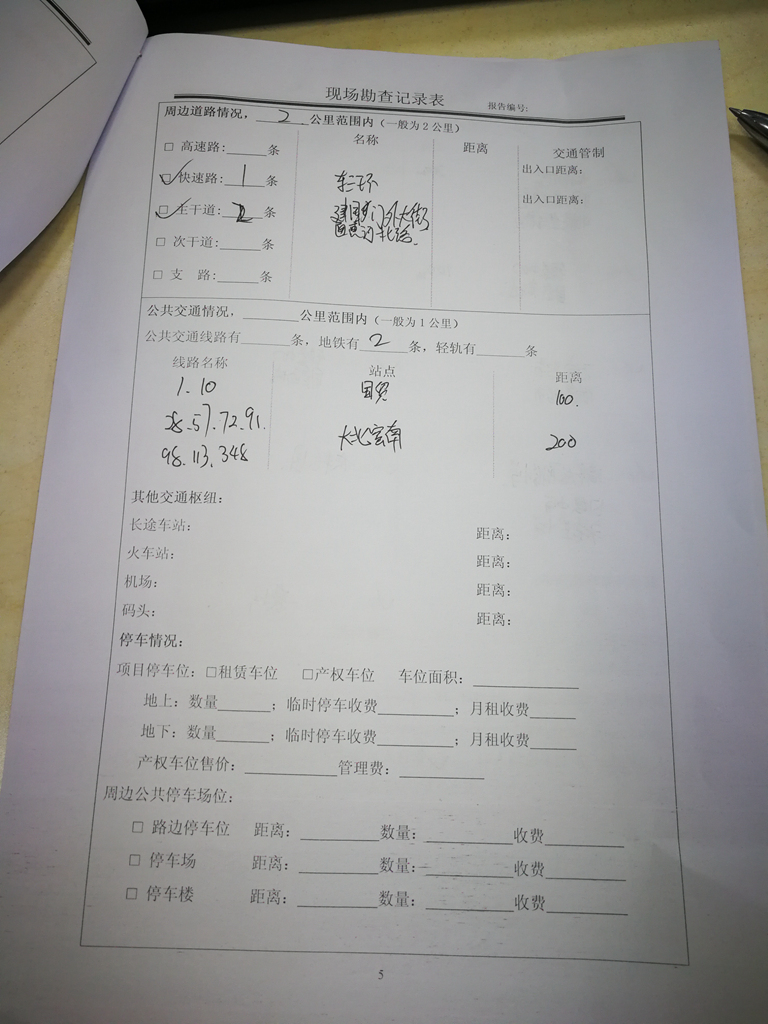 现场勘查记录表
报告编号:
周边道路情况，2公里范围内（一般为2公里）
名称 距离 交通管制
□ 高速路:______条
☑ 快速路: 1 条 东三环 出入口距离:
☑ 主干道: 2 条 建国门外大街 出入口距离:
□ 次干道:______条
□ 支 路:______条
公共交通情况，________公里范围内（一般为1公里）
公共交通线路有______条，地铁有 2 条，轻轨有______条
线路名称 站点 距离
1.10 国贸 100.
28.57.72.91. 大北窑南 200
98.113.348
其他交通枢纽:
长途车站: 距离:
火车站: 距离:
机场: 距离:
码头: 距离:
停车情况:
项目停车位: □租赁车位 □产权车位 车位面积:____________
地上: 数量______; 临时停车收费_________; 月租收费_____
地下: 数量______; 临时停车收费_________; 月租收费_____
产权车位售价: ___________管理费: __________
周边公共停车场位:
□ 路边停车位 距离: _________数量: __________收费_________
□ 停车场 距离: _________数量: __________收费_________
□ 停车楼 距离: _________数量: __________收费_________
5